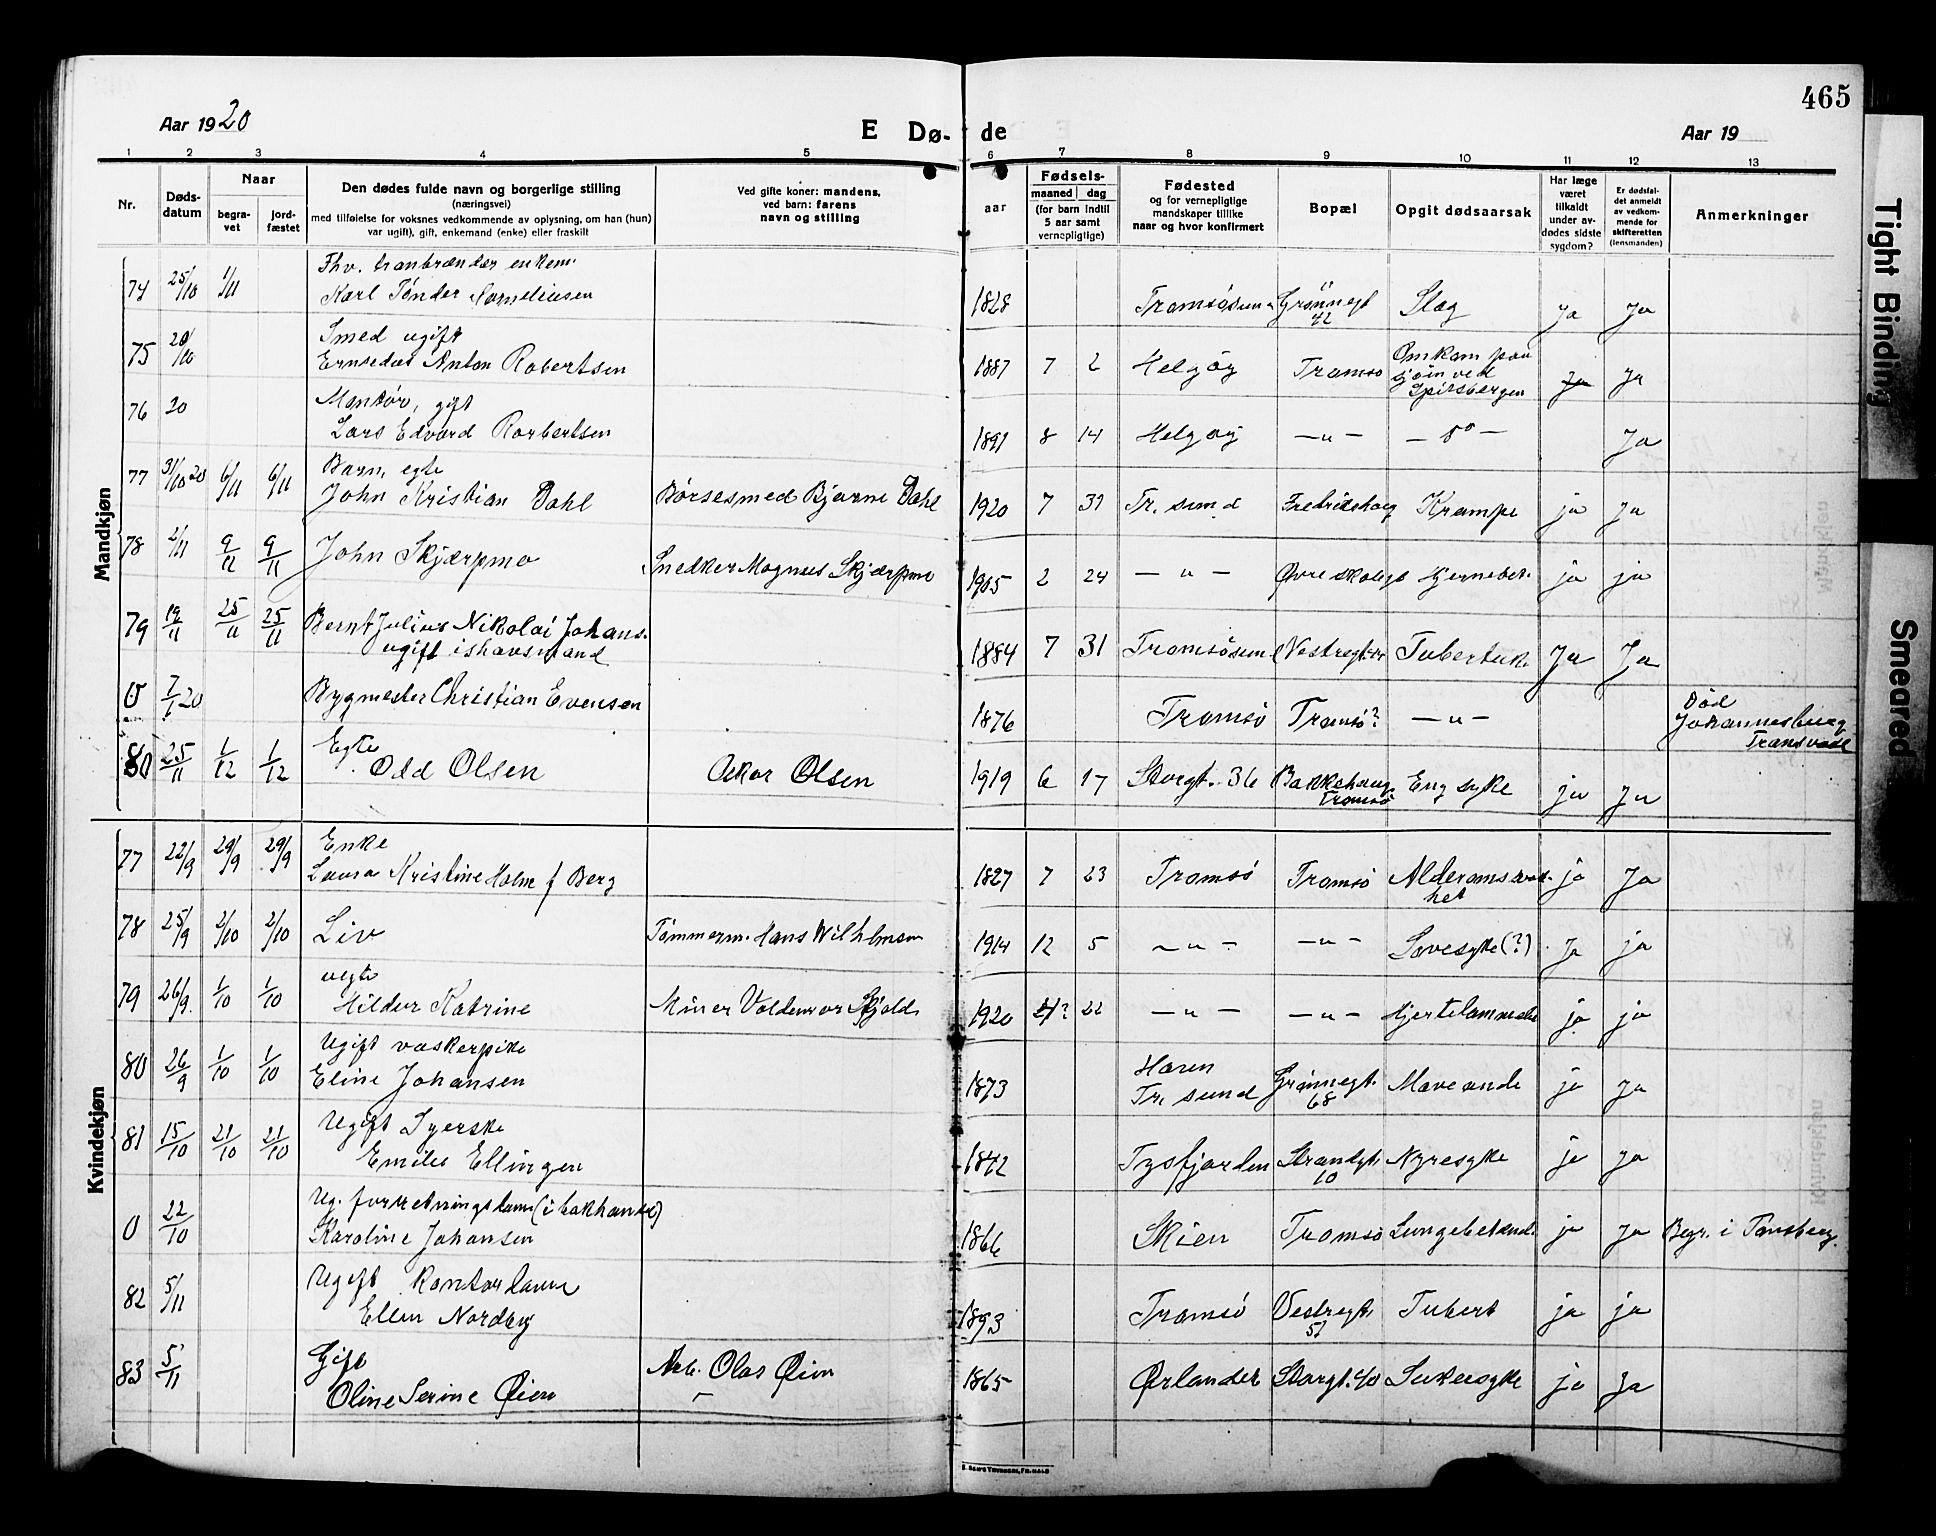 465
Aar 1920
E Dø-
de
Aar 19
1 2 3 4 5 6 7 8 9 10 11 12 13
Nr.
Døds-
datum
Naar
begra-
vet
jord-
fæstet
Den dødes fulde navn og borgerlige stilling
(næringsvei)
med tilføielse for voksnes vedkommende av oplysning, om han (hun)
var ugift), gift, enkemand (enke) eller fraskilt
Ved gifte koner: mandens,
ved barn: farens
navn og stilling
Fødsels-
aar
maaned
dag
(for barn indtil
5 aar samt
vernepligtige)
Fødested
og for vernepligtige
mandskaper tillike
naar og hvor konfirmert
Bopæl
Opgit dødsaarsak
Har læge
været
tilkaldt
under av-
dødes sidste
sygdom?
Er dødsfal-
det anmeldt
av vedkom-
mende for
skifteretten
(lensmanden)
Anmerkninger
Mandkjøn
Fhv. tranbrænder enkem.
74 25/10 1/11 Karl Tønder Corneliusen 1828 Tromsøsun Grønnegt 42 Slag Ja Ja
Smed ugift
75 20/10 Anton Robertsen 1887 7 2 Helgøy Tromsø Omkom paa sjøin ved Spitsbergen Ja Ja
gift
76 20 Lars Edvard Rorbertsen 1891 8 14 Helgøy — " — — Do — Ja
Barn, egte
77 31/10 20 6/11 6/11 John Kristian Dahl Børsesmed Bjarne Dahl 1920 7 31 Tr. sund Krampe ja Ja
78 2/11 9/11 9/11 John Skjærpmo Snedker Magnus Skjærpmo 1905 2 24 — " — Øvre skolegt Hjernebet. ja ja
79 19/11 25/11 25/11 Bernt Julius Nikolai Johans. 1884 7 31 Tromsøsun Vestregt. Tuberkuk. Ja Ja
ugift ishavsmand
0 7/1 20 Bygmester Christian Evensen 1876 Tromsø Tromsø? — " — Død
Johannesburg
Transvaal
Egte
80 25/11 1/12 1/12 Odd Olsen Oskar Olsen 1919 6 17 Storgt. 36 Bakkehaug Tromsø Eng syke ja Ja
Kvindekjøn
Enke
77 22/9 29/9 29/9 Laura Kristine Holm f Berg 1827 7 23 Tromsø Tromsø Alderdomssvak-het ja Ja
78 25/9 2/10 2/10 Liv Tømmerm. Hans Wilhelmsen 1914 12 5 — " — — " — Sovesyke (?) Ja ja
uegte
79 26/9 1/10 1/10 Hildur Katrine Miner Valdemar Skjold 1920 4? 22 — " — — " — Hjertelammelse ja ja
Ugift vaskerpike
80 26/9 1/10 1/10 Eline Johansen 1873 Tr. sund Grønnegt. 68 ja Ja
Ugift Syerske
81 15/10 21/10 21/10 Emilie Ellingsen 1842 Tysfjorden Strandgt. 10 Nyresyke ja Ja
Ug. forretningsdame
0 22/10 Karoline Johansen 1866 Skien Tromsø Lungebetænd. ja Ja Begr. i Tønsberg.
Ugift Kontordame
82 5/11 Ellen Nordby 1893 Tromsø Vestregt. 51 Tuberk ja ja
Gift
83 5/11 Oline Serine Øien Arb. Olas Øien 1865 Ørlandet Storgt. 40 Sukersyke ja Ja
Tight Binding
Smeared